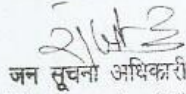 जन सूचना अधिकारी